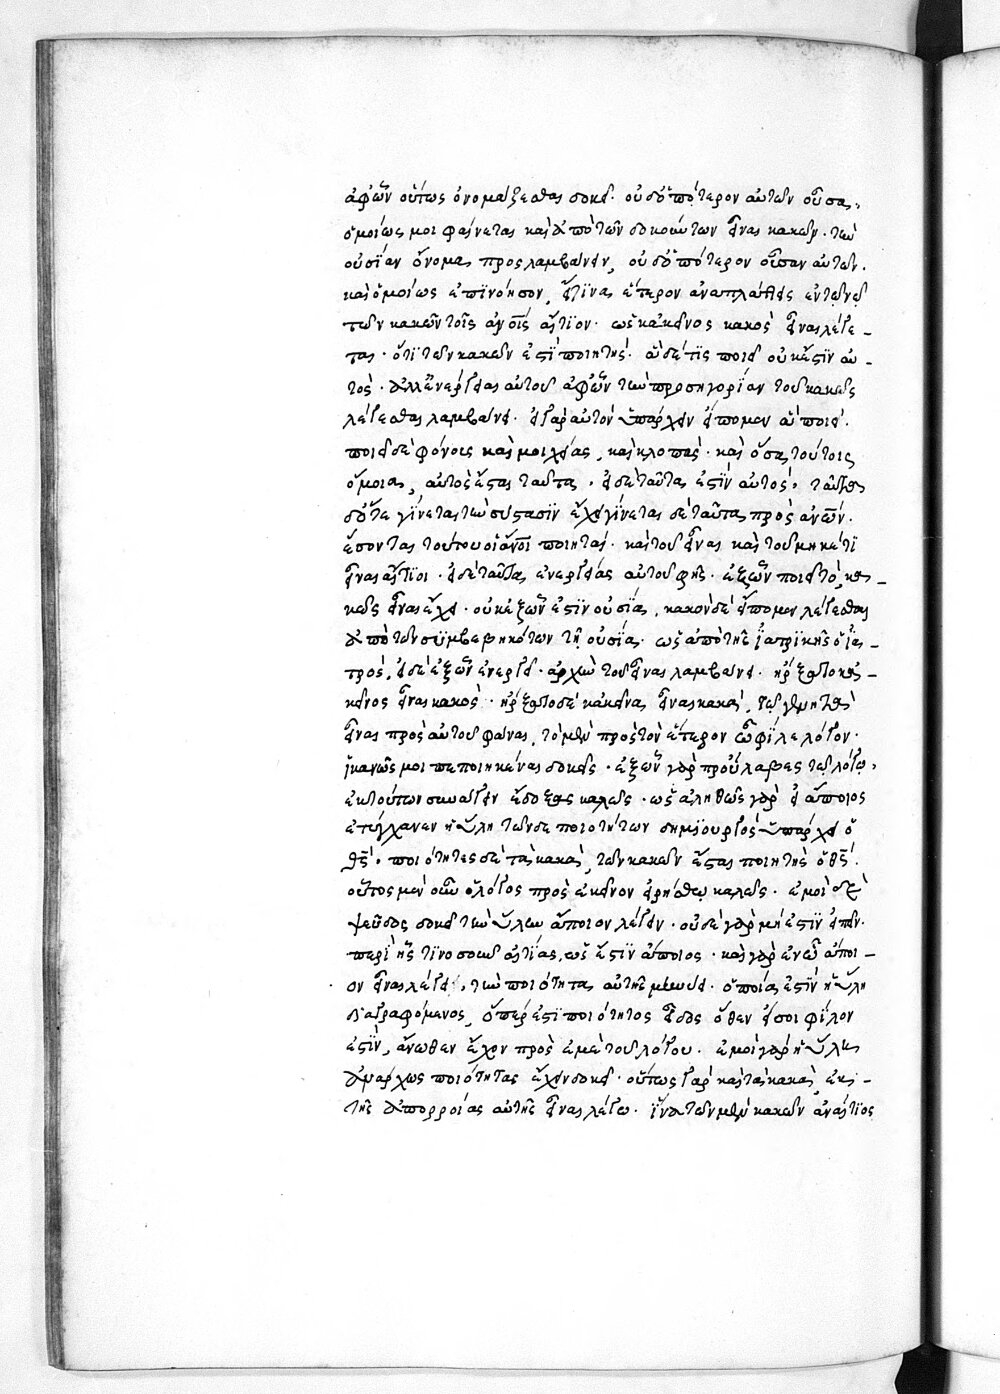 ἀφ' ὧν οὕτως ὀνομάζεσθαι δοκεῖ. οὐδ' ὁπότερον αὐτῶν οὖσα.
ὁμοίως μοι φαίνεται καὶ ἀπὸ τῶν δοκούντων εἶναι κακῶν. τὴν
οὐσίαν ὄνομα προσλαμβάνειν, οὐδ' ὁπότερον οὖσαν αὐτῶν.
καὶ ὁμοίως ἐπϊνόησον, εἴ τινα ἕτερον ἀναπλασθεὶς ἐν τῷ νῷ
τῶν κακῶν τοῖς ἀνοις αἴτϊον. ὡς κἀκεῖνος κακὸς εἶναι λέγε-
ται. ὅτϊ τῶν κακῶν ἐστϊ ποιητής. ἃ δέ τϊς ποιεῖ οὐκ ἔστϊν αὐ-
τός. ἀλλ' ἐνέργειαι αὐτοῦ ἀφ' ὧν τὴν προσηγορίαν τοῦ κακὸς
λέγεσθαι λαμβάνει. εἰ γὰρ αὐτὸν ὑπάρχειν εἴποιμεν ἃ ποιεῖ.
ποιεῖ δὲ φόνους καὶ μοιχείας, καὶ κλοπάς. καὶ ὅσα τούτοις
ὅμοια, αὐτὸς ἔσται ταῦτα. εἰ δὲ ταῦτα ἐστϊν αὐτός. ταῦτα
δ' ὅτε γίνεται τὴν σύστασϊν ἔχει γίνεται δὲ ταῦτα πρὸς ἀνων.
ἔσονται τούτου οἱ ἄνοι ποιηταί. καὶ τοῦ εἶναι καὶ τοῦ μηκέτϊ
εἶναι αἴτϊοι. εἰ δὲ ταῦτα ἐνεργείας αὐτοῦ φῂς. ἐξ ὧν ποιεῖ τὸ κα-
κὸς εἶναι ἔχει. οὐκ ἐξ ὧν ἐστϊν οὐσίᾳ, κακὸν δὲ εἴπομεν λέγεσθαι
ἀπὸ τῶν συμβεβηκότων τῇ οὐσίᾳ. ὡς ἀπὸ τῆς ἰατρϊκῆς ὁ ἰα-
τρός. εἰ δὲ ἐξ ὧν ἐνεργεῖ. ἀρχὴν τοῦ εἶναι λαμβάνει. ἤρξατο κἀ-
κεῖνος εἶναι κακός. ἤρξατο δὲ κἀκεῖνα εἶναι κακά,
εἶναι πρὸς αὐτοῦ φαίνας, τὸ μὲν πρὸς τὸν ἕτερον ὦ φίλε λόγον.
ἱκανῶς μοι πεποιηκέναι δοκεῖς. ἐξ ὧν γὰρ προύλαβες τῷ λόγῳ,
ἐκ τούτων συνάγειν ἔδοξας καλῶς. ὡς ἀληθῶς γὰρ εἰ ἄποιος
ἐτύγχανεν ἡ ὕλη τῶν δὲ ποιοτήτων δημϊουργὸς ὑπάρχει ὁ
θς. ποιότητες δὲ τὰ κακά, τῶν κακῶν ἔσται ποιητὴς ὁ θς.
οὗτος μὲν οὖν ὁ λόγος πρὸς ἐκεῖνον εἰρήσθω καλῶς. ἐμοὶ δὲ
ψεῦδος δοκεῖ τὴν ὕλην ἄποιον λέγειν. οὐδὲ γὰρ μή ἐστϊν εἰπεῖν.
περὶ ἧς τϊνοσοῦν οὐσίας, ὡς ἔστϊν ἄποιος. καὶ γὰρ ἐν ᾧ ἄποι-
ον εἶναι λέγει, τὴν ποιότητα αὐτῆς μηνύει. ὁποία ἐστϊν ἡ ὕλη
διαγραφόμενος, ὅπερ ἐστϊ ποιότητος εἶδος ὅθεν εἴ σοι φίλον
ἐστϊν, ἄνωθεν ἔχου πρὸς ἐμὲ τοῦ λόγου. ἐμοὶ γὰρ ἡ ὕλη
ἀνάρχως ποιότητας ἔχειν δοκεῖ. οὕτως γὰρ καὶ τὰ κακὰ ἐκ
τῆς ἀπορροίας αὐτῆς εἶναι λέγω. ἵνα τῶν μὲν κακῶν ἀναίτϊος